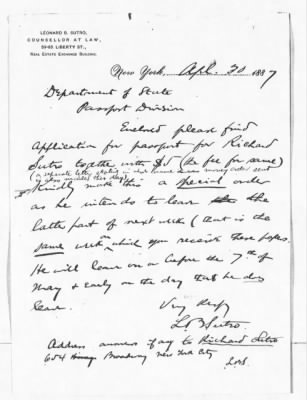 LEONARD B. SUTRO,
COUNSELLOR AT LAW,
59-65 LIBERTY ST.,
REAL ESTATE EXCHANGE BUILDING.
New York, Apl. 30 1887
Department of State
Passport Division
Enclosed please find
Application for passport for Richard
Sutro together with (the fee for same)
(a separate letter stating in what manner money order sent
is also mailed this day)
Kindly make this a special order
as he intends to leave the
latter part of next week (that is the
same week on which you receive these papers.
He will leave on or before the 7th of
May & early on the day that he does
leave.
Very Respy
L B Sutro.
Address answer if any to Richard Sutro
Broadway New York City
LBS.